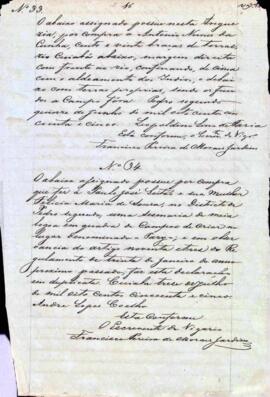 Nº 33
O abaixo assignado possue nesta Fregue
zia, por compra a Antonio Nunes da
Cunha, cento e vinte braças de terras,
Rio abaixo, margem direita
com frente ao rio, confinando, de cima
com o aldeamento dos Indios, e debai
xo com terras proprias, sendo os fun
dos a Campo fora. Pedro segundo
quinze de Junho de mil oito centos cin
coenta e cinco.
Está conforme, o
Francisco Pereira de Moraes Jardim
Nº 34
O abaixo assignado possue por compra
que fez a Paulo José Leite e sua Mulher
Maria de Souza, no Districto de
Pedro segundo, uma sesmaria de meia
legoa em quadra de Campos de criar no
lugar denominado e em obser
vancia do artigo noventa e tres do Re
gulamento de trinta de Janeiro de anno
proximo passado, faz esta declaração
em duplicata. treze de Julho
de mil oito centos cincoenta e cinco.
André Lopes Coelho
Está Conforme
O Escrevente do Vigario
Francisco Pereira de Moraes Jardim